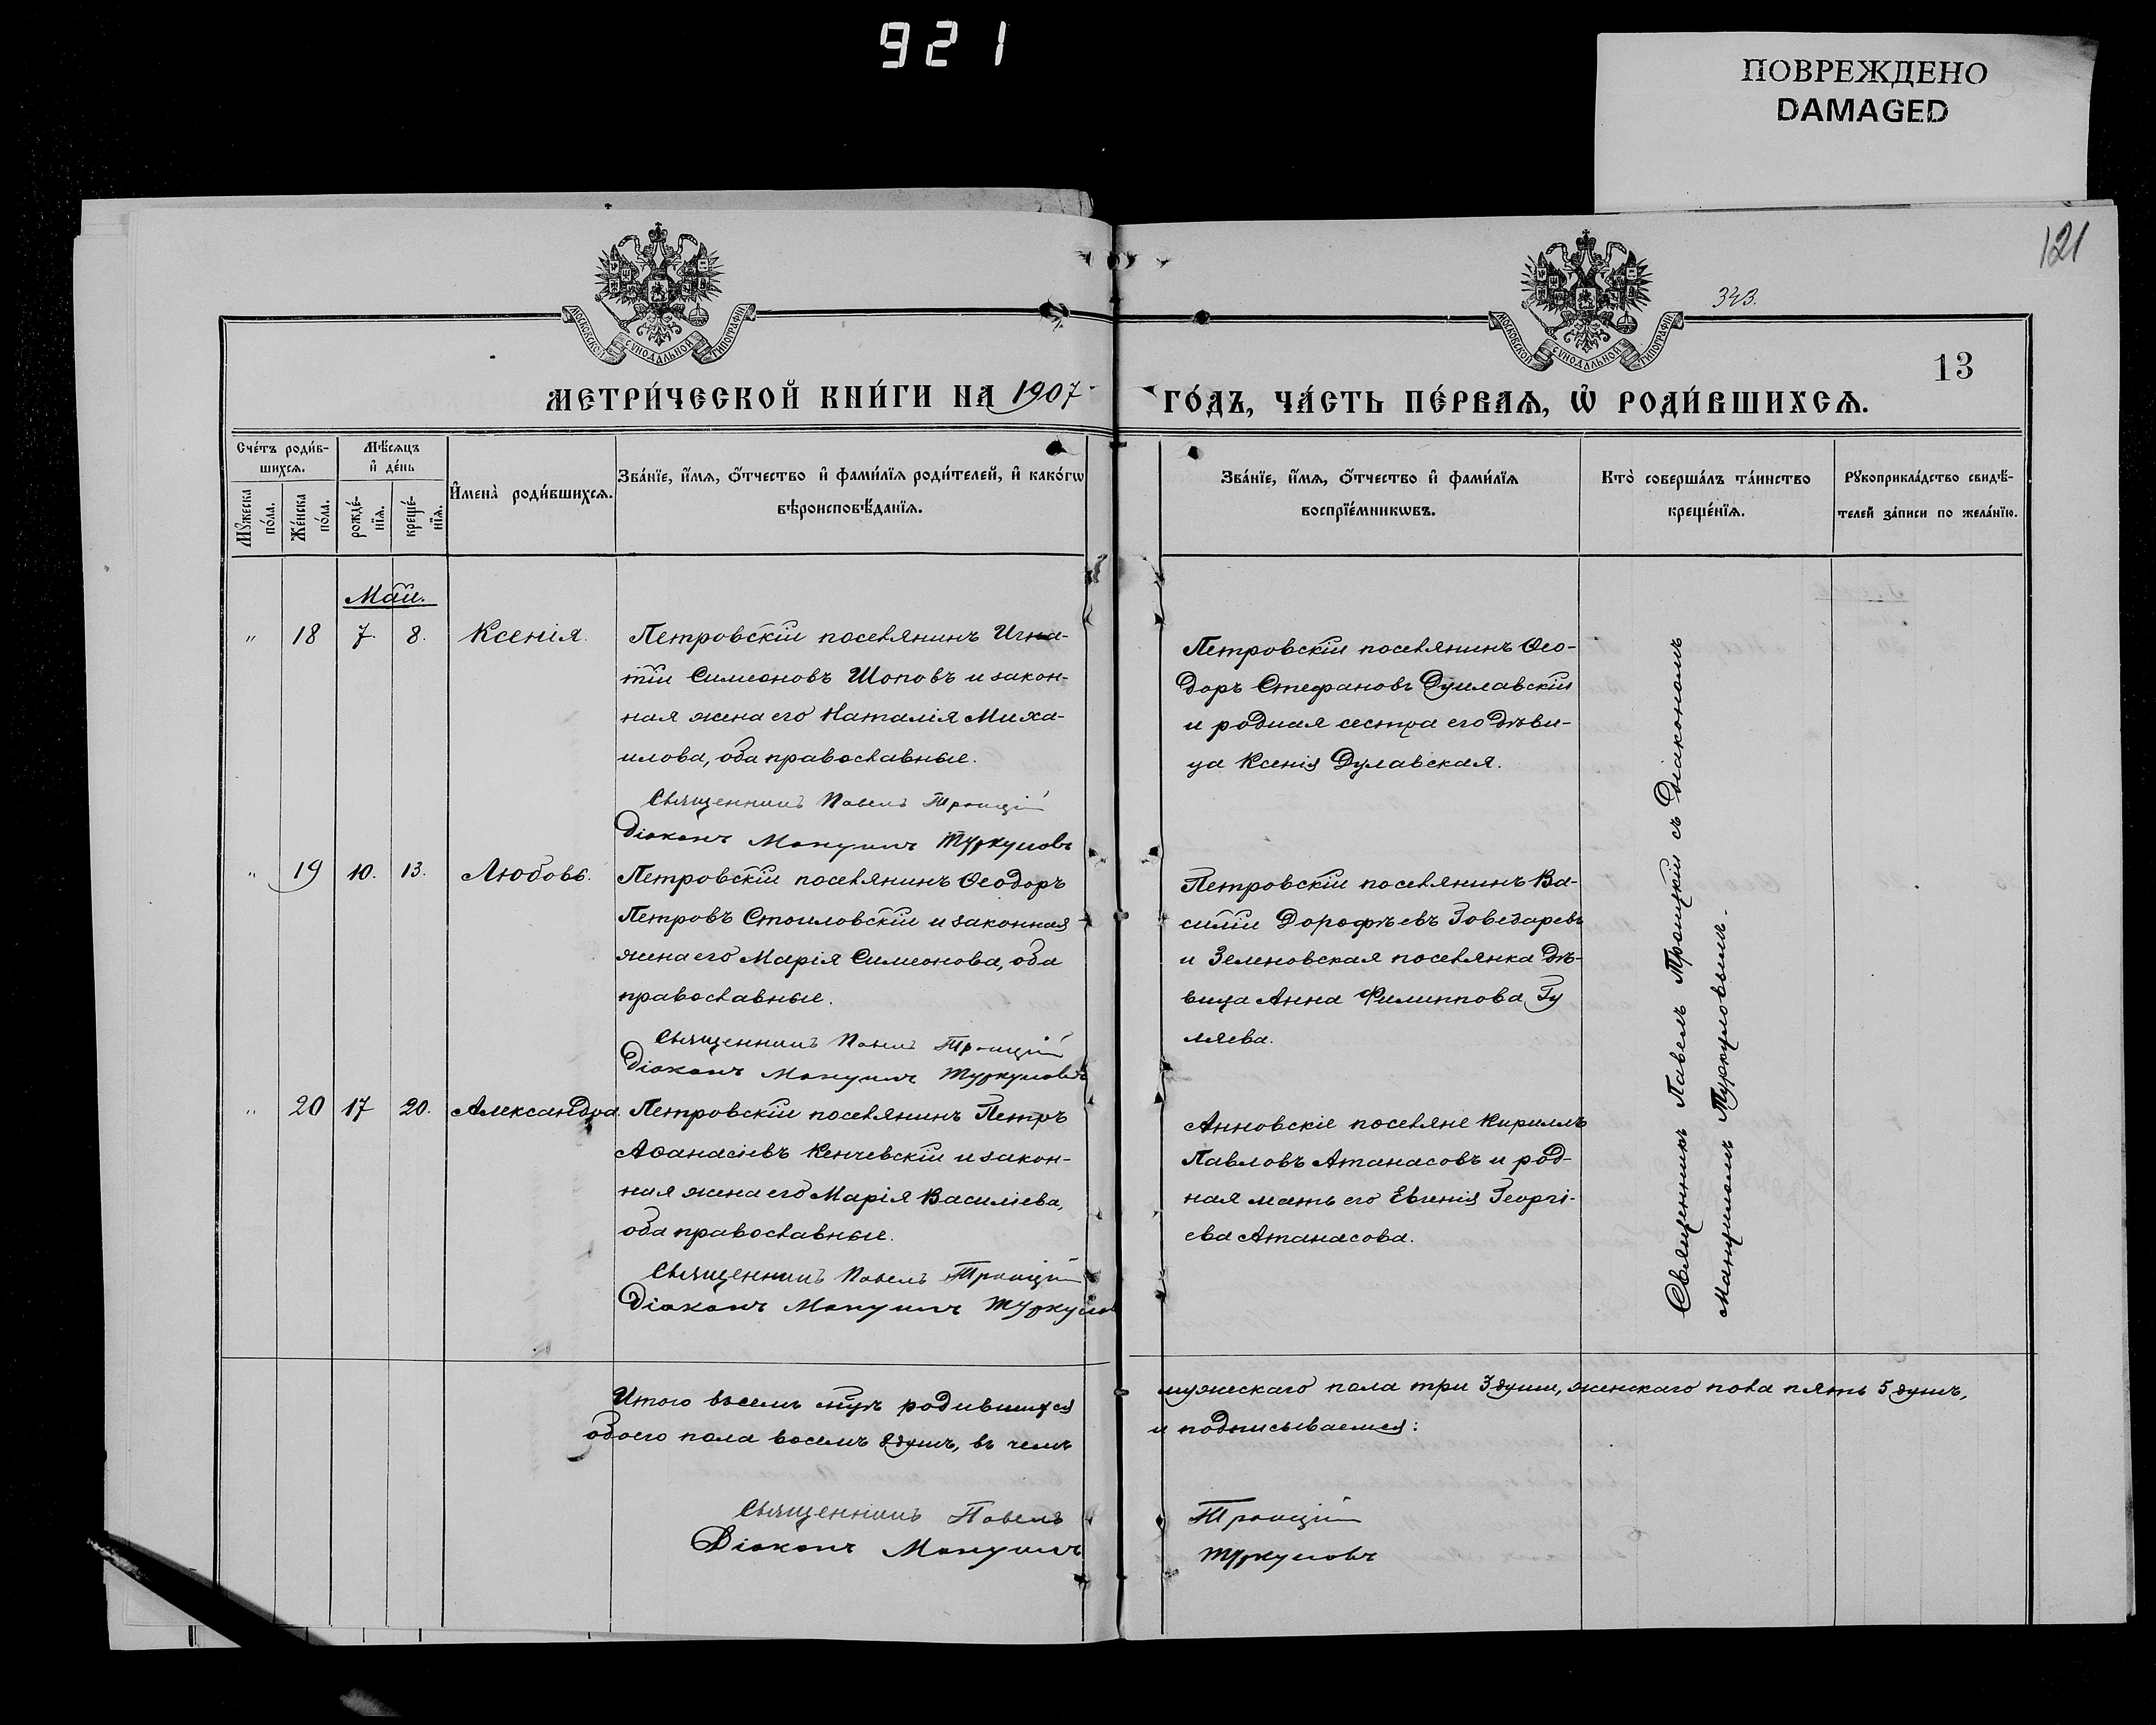 921
ПОВРЕЖДЕНО
DAMAGED
121
343.
13
МОСКОВСКОЙ СѴНОДАЛЬНОЙ ТИПОГРАФІИ
МОСКОВСКОЙ СѴНОДАЛЬНОЙ ТИПОГРАФІИ
МЕТРИ́ЧЕСКОЙ КНИ́ГИ НА 1907 ГО́ДЪ, ЧА́СТЬ ПЕ́РВАѦ, Ѡ҆ РОДИ́ВШИХСѦ.
Сче́тъ роди́в-
шихсѧ.
Мꙋ́жеска по́ла.
Же́нска по́ла.
Мѣ́сѧцъ
и҆ де́нь
рожде́-
нїѧ.
креще́-
нїѧ.
И҆мена̀ роди́вшихсѧ.
Зва́нїе, и҆́мѧ, ѻ҆́тчество и҆ фами́лїѧ роди́телей, и҆ како́гѡ
вѣроисповѣ́данїѧ.
Зва́нїе, и҆́мѧ, ѻ҆́тчество и҆ фами́лїѧ
воспрїе́мникѡвъ.
Кто̀ соверша́лъ та́инство
креще́нїѧ.
Рꙋкоприкла́дство свидѣ́-
телей за́писи по жела́нїю.
Май.
" 18 7. 8. Ксенія.
Петровскій поселянинъ Игна-
тій Симеоновъ Шоповъ и закон-
ная жена его Наталія Миха-
илова, оба православные.
Священникъ Павелъ Троицкій
Діаконъ Мануилъ Туркуловъ
Петровскій поселянинъ Ѳео-
доръ Стефановъ Дулавскій
и родная сестра его дѣви-
ца Ксенія Дулавская.
" 19 10. 13. Любовь.
Петровскій поселянинъ Ѳеодоръ
Петровъ Стоиловскій и законная
жена его Марія Симеонова, оба
православные.
Священникъ Павелъ Троицкій
Діаконъ Мануилъ Туркуловъ
Петровскій поселянинъ Ва-
силій Дорофѣевъ Говедаревъ
и Зеленовская поселянка дѣ-
вица Анна Филиппова Гу
ляева.
" 20 17 20. Александра.
Петровскій поселянинъ Петръ
Аѳанасіевъ Кенчевскій и закон-
ная жена его Марія Василіева,
оба православные.
Священникъ Павелъ Троицкій
Діаконъ Мануилъ Туркулов
Анновскіе поселяне Кириллъ
Павловъ Атанасовъ и род-
ная мать его Евгенія Георгі-
ева Атанасова.
Священникъ Павелъ Троицкій съ Діакономъ
Мануиломъ Туркуловымъ.
Итого въ семъ родившихся мужескаго пола три 3 души, женскаго пола пять 5 душъ,
обоего пола восемь 8 душъ, въ чемъ и подписываемся:
Священникъ Павелъ Троицкій
Діаконъ Мануилъ Туркуловъ